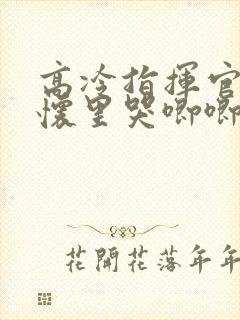 高冷指揮官
懷里哭唧唧
花開花落年年